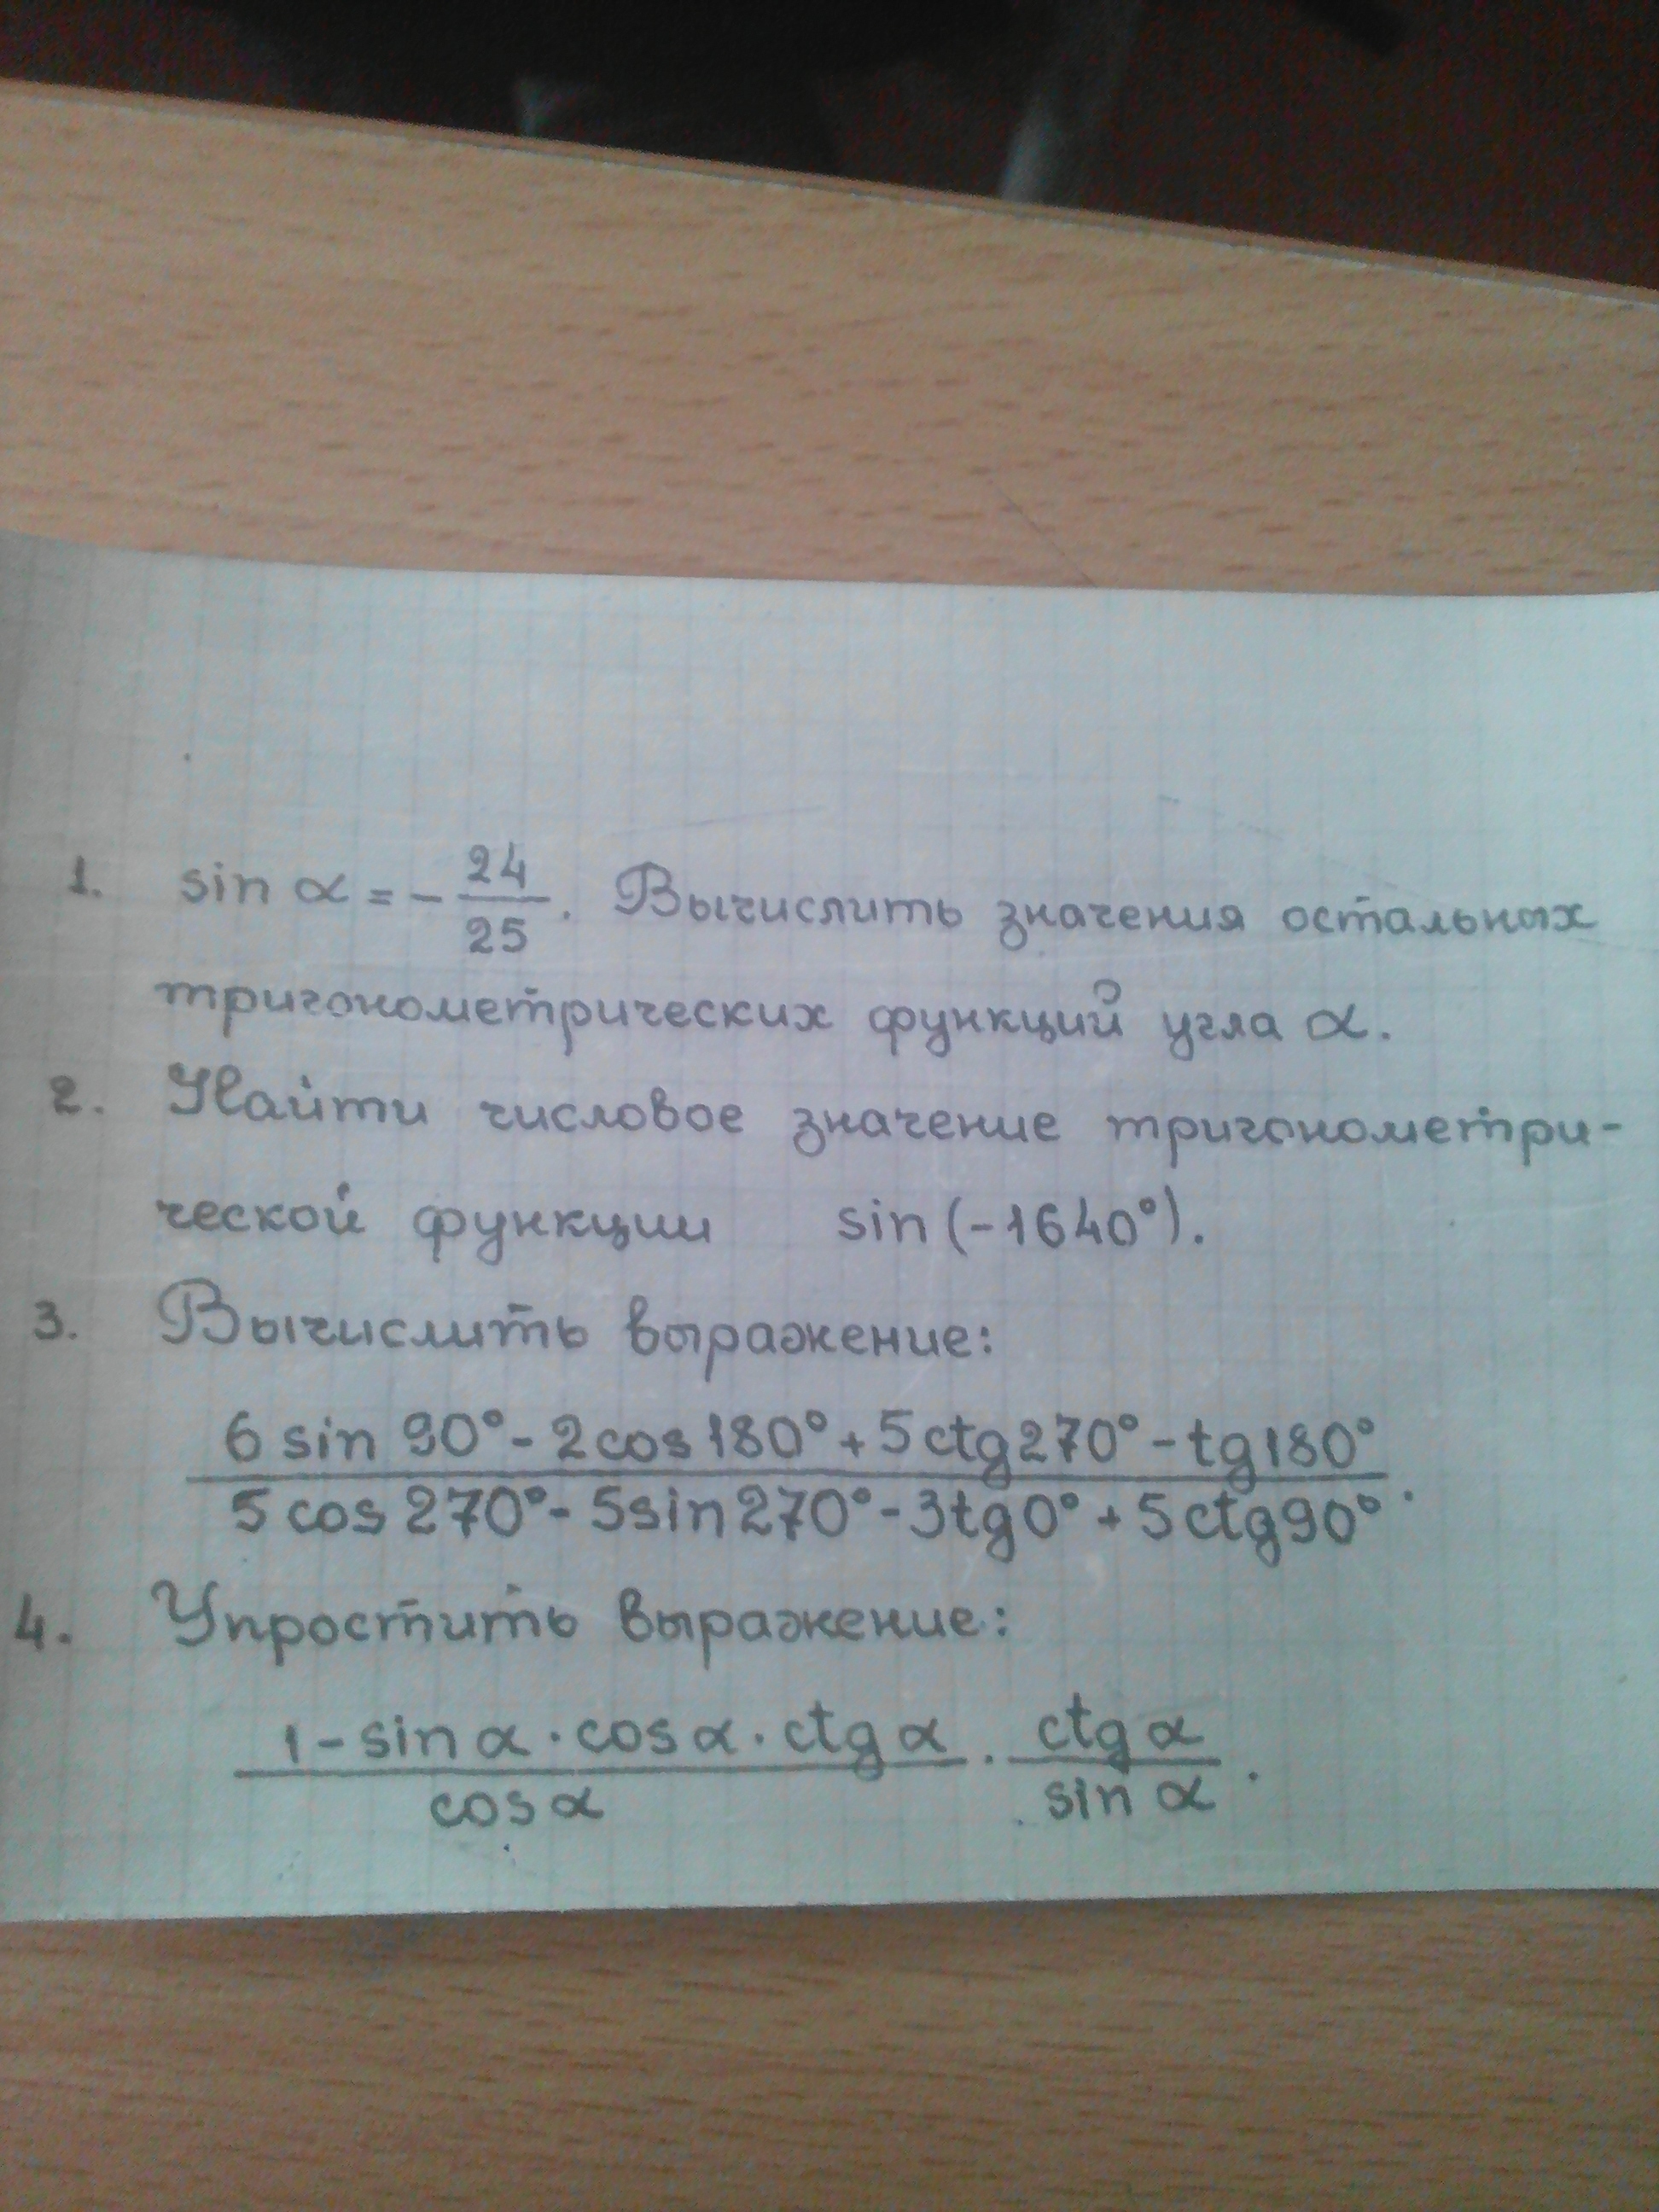 1. sin α = - 24/25. Вычислить значения остальных
тригонометрических функций угла α.
2. Найти числовое значение тригонометри-
ческой функции sin (-1640°).
3. Вычислить выражение:
6 sin 90° - 2 cos 180° + 5 ctg 270° - tg 180°
5 cos 270° - 5 sin 270° - 3 tg 0° + 5 ctg 90° .
4. Упростить выражение:
1 - sin α · cos α · ctg α · ctg α
cos α sin α .